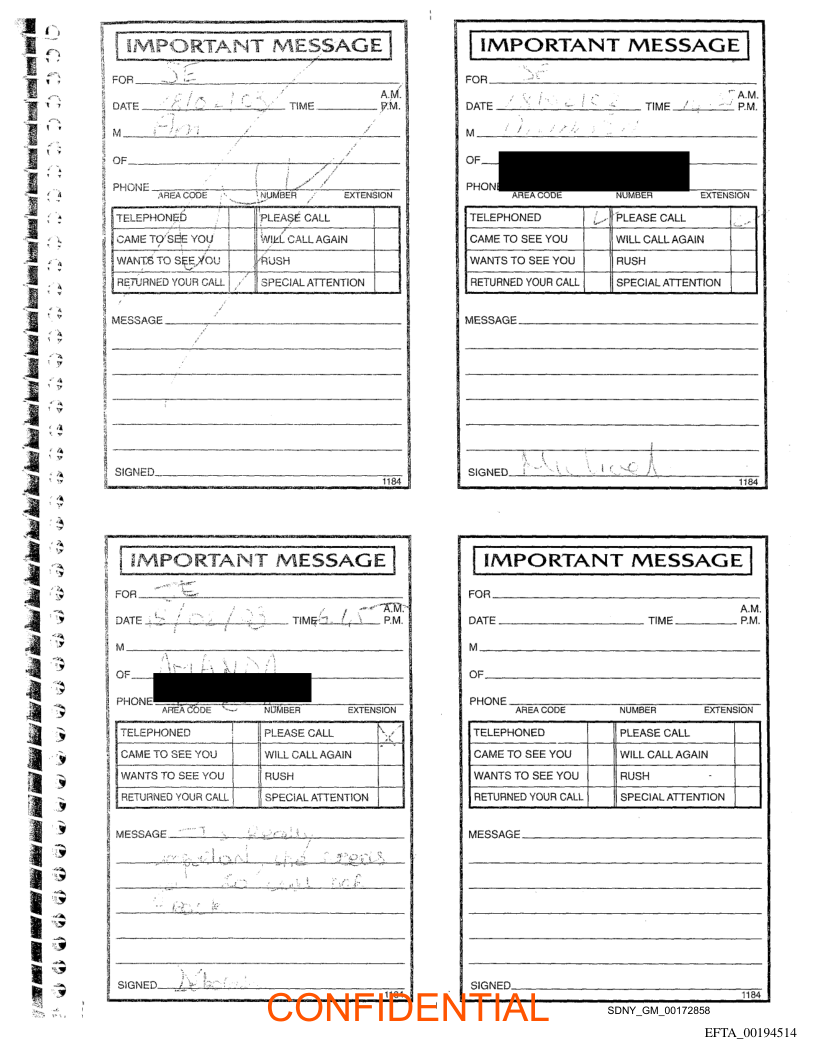 IMPORTANT MESSAGE
FOR JE
A.M.
DATE TIME P.M.
M
OF
PHONE
AREA CODE NUMBER EXTENSION
TELEPHONED PLEASE CALL
CAME TO SEE YOU WILL CALL AGAIN
WANTS TO SEE YOU RUSH
RETURNED YOUR CALL SPECIAL ATTENTION
MESSAGE
SIGNED
1184
IMPORTANT MESSAGE
FOR JE
A.M.
DATE TIME P.M.
M
OF
PHONE
AREA CODE NUMBER EXTENSION
TELEPHONED PLEASE CALL
CAME TO SEE YOU WILL CALL AGAIN
WANTS TO SEE YOU RUSH
RETURNED YOUR CALL SPECIAL ATTENTION
MESSAGE
SIGNED Michael
1184
IMPORTANT MESSAGE
FOR JE
A.M.
DATE TIME 6.45 P.M.
M
OF AMANDA
PHONE
AREA CODE NUMBER EXTENSION
TELEPHONED PLEASE CALL X
CAME TO SEE YOU WILL CALL AGAIN
WANTS TO SEE YOU RUSH
RETURNED YOUR CALL SPECIAL ATTENTION
MESSAGE Really
so call her
back
SIGNED
1184
IMPORTANT MESSAGE
FOR
A.M.
DATE TIME P.M.
M
OF
PHONE
AREA CODE NUMBER EXTENSION
TELEPHONED PLEASE CALL
CAME TO SEE YOU WILL CALL AGAIN
WANTS TO SEE YOU RUSH
RETURNED YOUR CALL SPECIAL ATTENTION
MESSAGE
SIGNED
1184
CONFIDENTIAL
SDNY_GM_00172858
EFTA_00194514